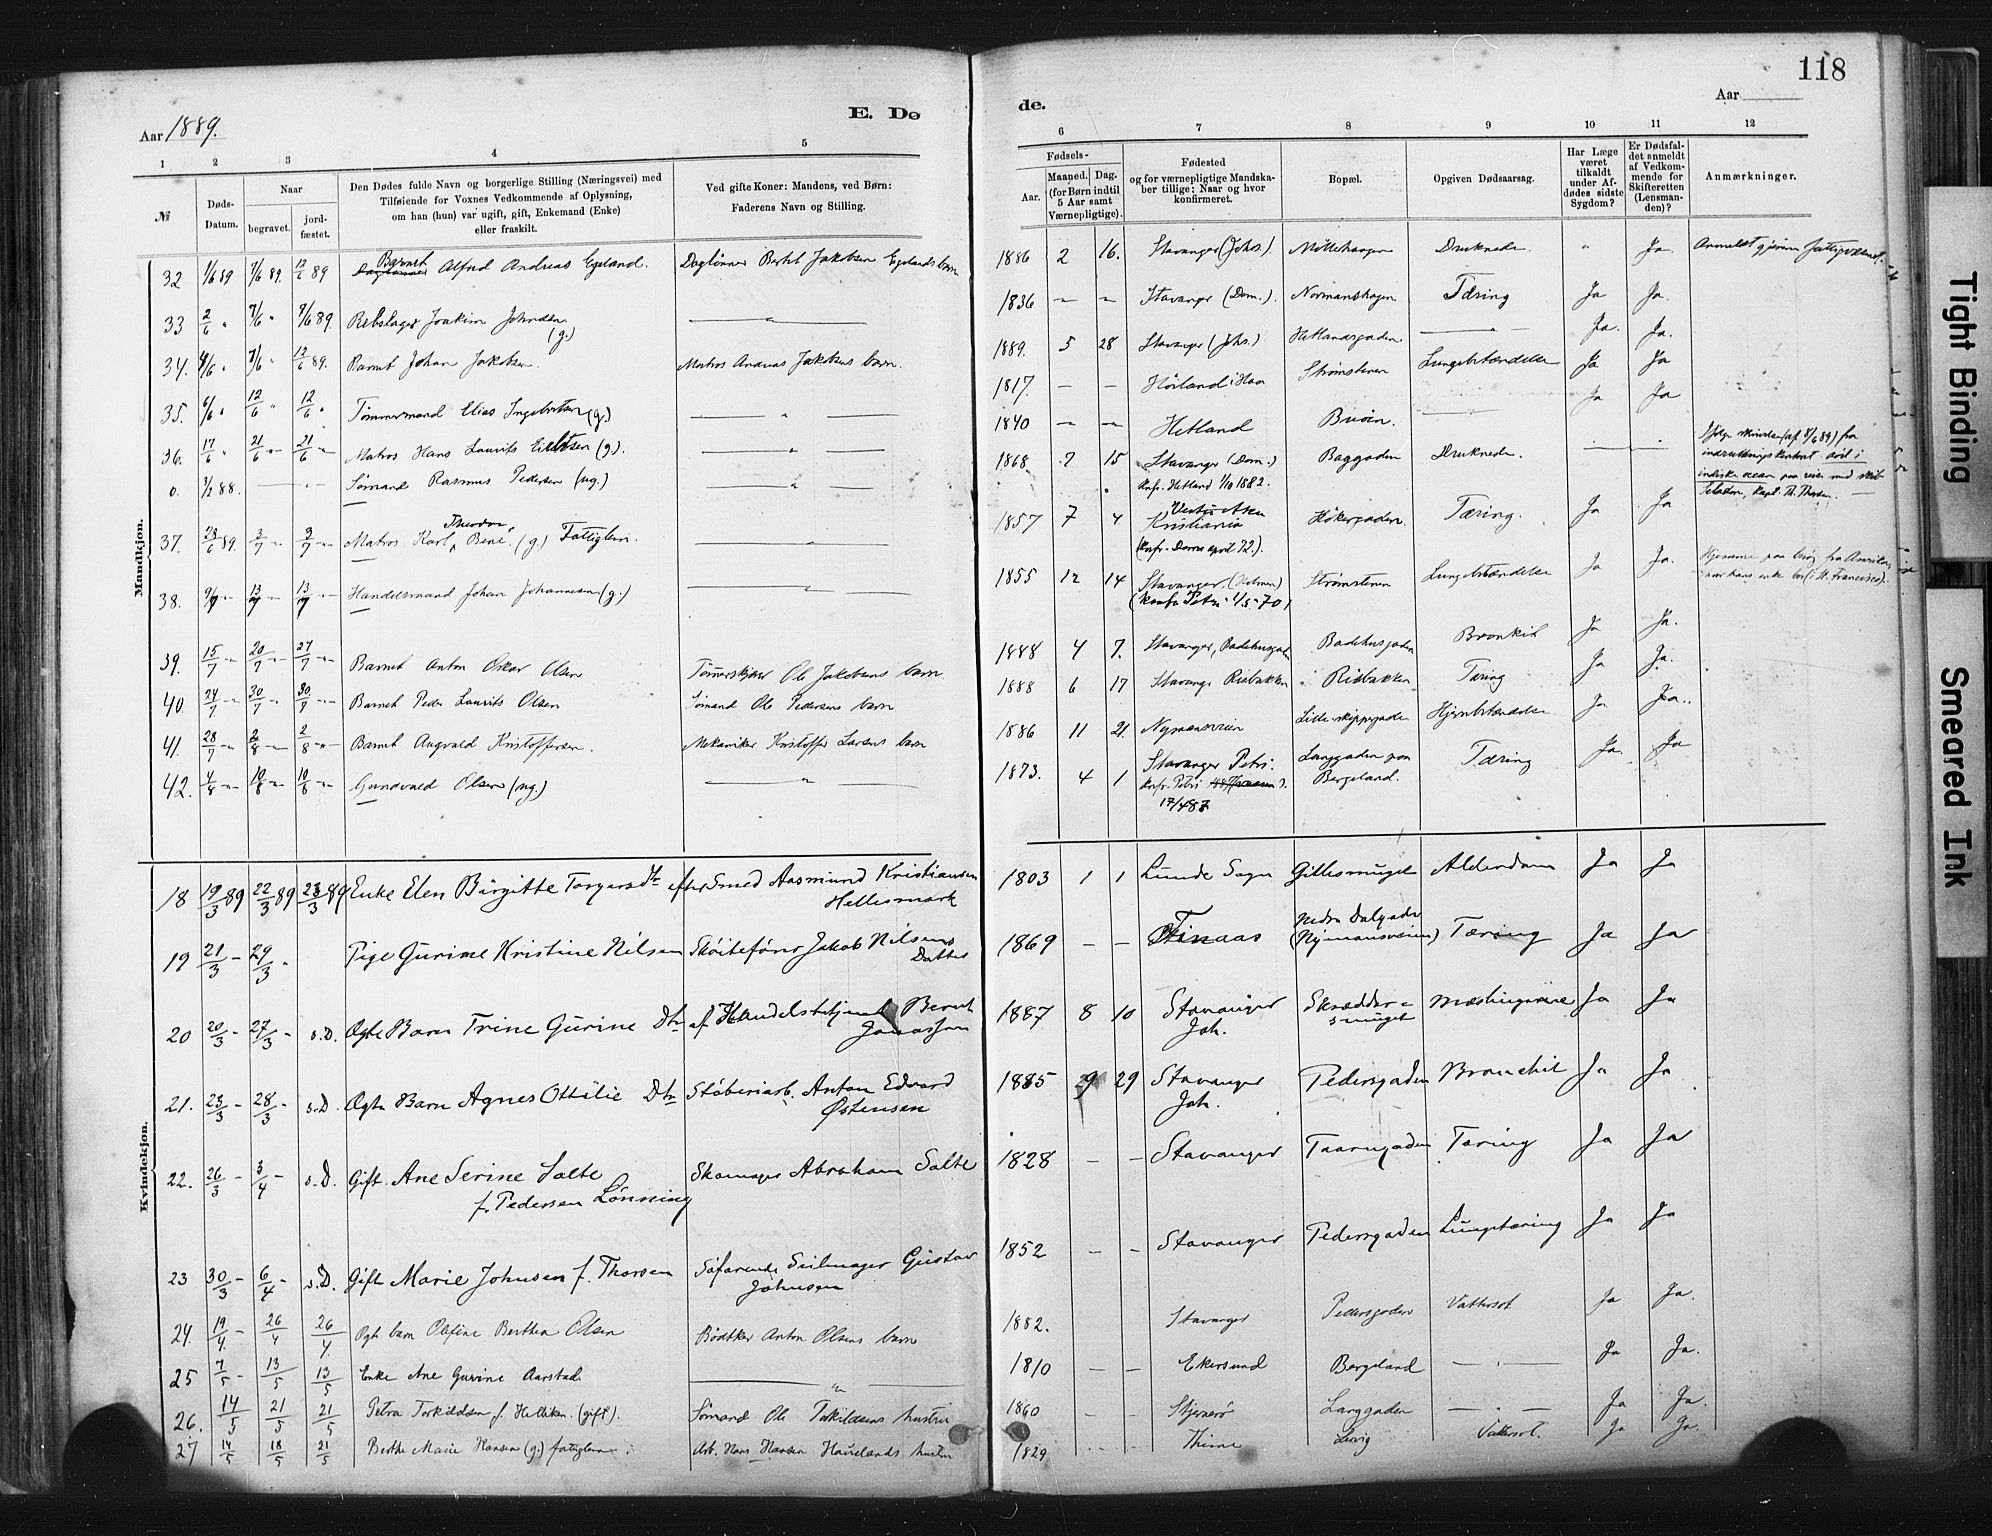 118
Aar 1889.
E. Dø
de.
Aar
1 2 3 4 5
6 7 8 9 10 11 12
№
Døds-
Datum.
Naar
begravet.
jord-
fæstet.
Den Dødes fulde Navn og borgerlige Stilling (Næringsvei) med
Tilføiende for Voxnes Vedkommende af Oplysning,
om han (hun) var ugift, gift, Enkemand (Enke)
eller fraskilt.
Ved gifte Koner: Mandens, ved Børn:
Faderens Navn og Stilling.
Fødsels-
Aar.
Maaned.
Dag.
(for Børn indtil
5 Aar samt
Værnepligtige).
Fødested
og for værnepligtige Mandska-
ber tillige: Naar og hvor
konfirmeret.
Bopæl.
Opgiven Dødsaarsag.
Har Læge
været
tilkaldt
under Af-
dødes sidste
Sygdom?
Er Dødsfal-
det anmeldt
af Vedkom-
mende for
Skifteretten
(Lensman-
den)?
Anmærkninger.
Mandkjøn.
32 1/6 89 7/6 89. 12/6 89 Barnet Alfred Andreas Egeland. Daglønner Bertel Jakobsen Egelands barn 1886 2 16. Stavanger (Johs.). Møllehaugen Druknede. " Ja. Anmeldt gjennem fattigvæsenet.
33 2/6 " 7/6 " 7/6 89. Rebslager Joakim Johnsen (g.) — " — 1836 — — Stavanger (Dom.). Normanshagen Tæring Ja Ja.
34. 4/6 " 7/6 " 12/6 89. Barnet Johan Jakobsen. Matros Andreas Jakobsens barn. 1889. 5 28 Stavanger (Johs.) Hetlandsgaden — " — Ja. Ja.
35. 6/6 " 12/6 " 12/6 " Tømmermand Elias Ingebretsen (g.) — " — 1817. — — Høiland i Haa Strømstenen Lungebetændelse Ja Ja
36. 17/6 " 21/6 " 21/6 " Matros Hans Laurits Eilertsen (g). — " — 1840 — — Hetland Buøen. — " — Ja Ja
0. 3/2 88. — " — Sømand Rasmus Pedersen (ug.) — " — 1868 7 15 Stavanger (Dom.) Baggaden Druknede. — "
Knfr. Hetland 1/10 1882.
indiske ocean paa reise med skib
37. 28/6 89. 3/7 " 3/7 " Matros Karl Theodor, Bene. (g.) Fattiglem. — " — 1857 7 4 Kristiania Høkergaden. Tæring. Ja Ja
(Knfr. Domk april 72.).
38. 9/7 " 13/7 " 13/7 " Handelsmand Johan Johannesen (g.) — " — 1855 12 14 Stavanger, (Holmen) Strømstenen Lungebetændelse Ja Ja. Hjemme paa besøg fra Amerika,
(Konfr. Petri 1/5 70) hvor hans enke bor (i St. Francisco).
39. 15/7 " 20/7 " 27/7 " Barnet Anton Oskar Olsen Ole Jakobsens barn 1888 4 7. Stavanger, Badehusgaden Badehusgaden Bronkit Ja Ja.
40. 24/7 " 30/7 " 30/7 " Barnet Peder Laurits Olsen Sømand Ole Pedersens barn 1888 6 17 Stavanger Risbakken Risbakken Tæring Ja Ja.
41. 28/7 " 2/8 " 2/8 " Barnet Augvald Kristoffersen. Mekaniker Kristoffer Larsens barn 1886 11 21. Nymansveien Lille skippergade Hjernebetændelse Ja Ja.
42. 4/8 " 10/8 " 10/8 " Gundvald Olsen (ug.) — " — 1873. 4 1 Stavanger Petri. Langgaden paa Bergeland. Tæring Ja. Ja
Knfr. Petri 17/4 87
Kvindekjøn.
18 19/3 89 22/3 89 23/3 89 Enke Elen Birgitte Torgersdtr efter Smed Aasmund Kristiansen Hellesmark 1803 1 1 Lunde Sogn Gillesmuget Alderdom Ja Ja
19 21/3 – 29/3 " Pige Gurine Kristine Nilsen Skøitefører Jakob Nilsens Datter 1869 – – Finaas Nedre Dalgade (Nymansveien) Tæring Ja Ja
20 20/3 – 27/3 – s.D. Ægte Barn Trine Gurine Dtr af Handelsbetjent Bernt Jonassen 1887 8 10 Stavanger Joh. Skrædder-smuget Mæslingerne Ja Ja
21. 23/3 – 28/3 – s.D. Ægte Barn Agnes Ottilie Dtr Støberiarb. Anton Edvard Østensen 1885 9 29 Stavanger Joh. Pedersgaden Bronchit Ja Ja
22. 26/3 – 3/4 – s.D. Gift. Ane Serine Salte f. Pedersen Lønning Skomager Abraham Salte 1828 – – Stavanger Taarngaden Tæring Ja Ja
23 30/3 – 6/4 – s.D. Gift Marie Johnsen f. Thorsen Søfarende Seilmager Gustav Johnsen 1852 – – Stavanger Pedersgaden Lungetæring Ja Ja
24. 19/4 – 26/4 26/4 Ægte barn Olefine Berthea Olsen Bødtker Anton Olsens barn 1882. Stavanger Pedersgaden Vattersot Ja Ja.
25 7/5 – 13/5 13/5 Enke Ane Gurine Aarstad. — " — 1810 – – Ekersund Bergeland — " — Ja Ja.
26. 14/5 21/5 21/5 Petra Torkildsen f. (gift). Sømand Ole Torkildsens hustru 1860 – – Stjernerø Langgaden — " — Ja Ja.
27 14/5 18/5 21/5 Berthe Marie Hansen (g.) fattiglem. Arb. Hans Hansen Hauelands hustru 1829 Thime Lervig Vattersot. Ja Ja.
Tight Binding
Smeared Ink